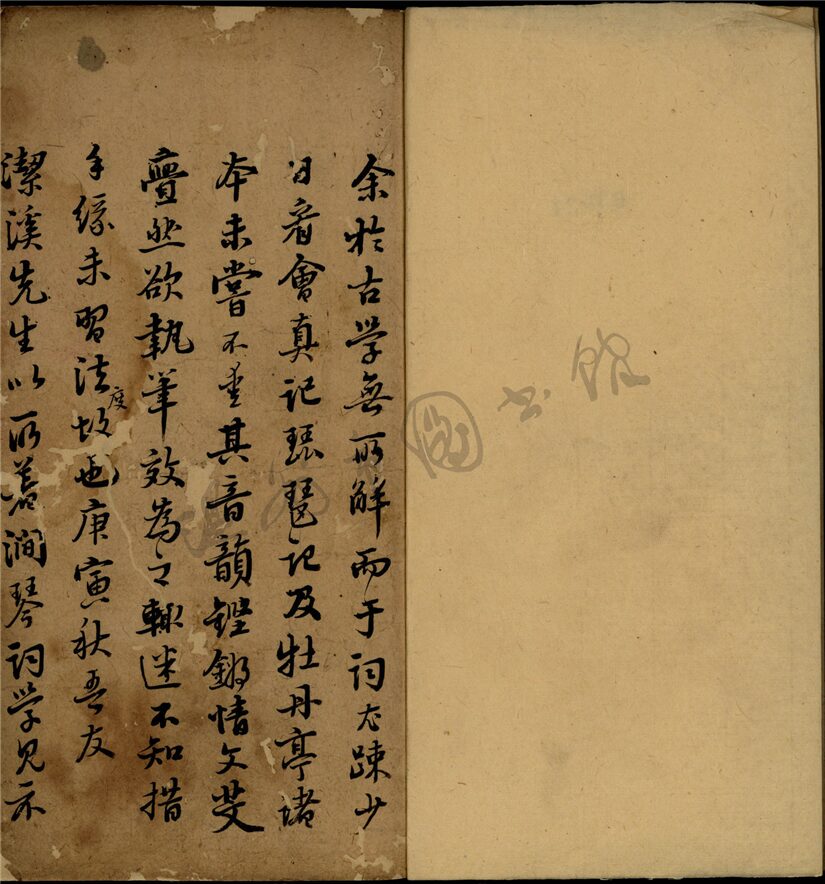 余於古学無所解而于词尤踈少
日看會真记琵琶记及牡丹亭诸
本未嘗不爱其音韻鏗鏘情文
亹亹然欲執筆效為之輙迷不知措
手缘未習法度故也庚寅秋吾友
潔溪先生以所著澗琴词学見示
圖书馆